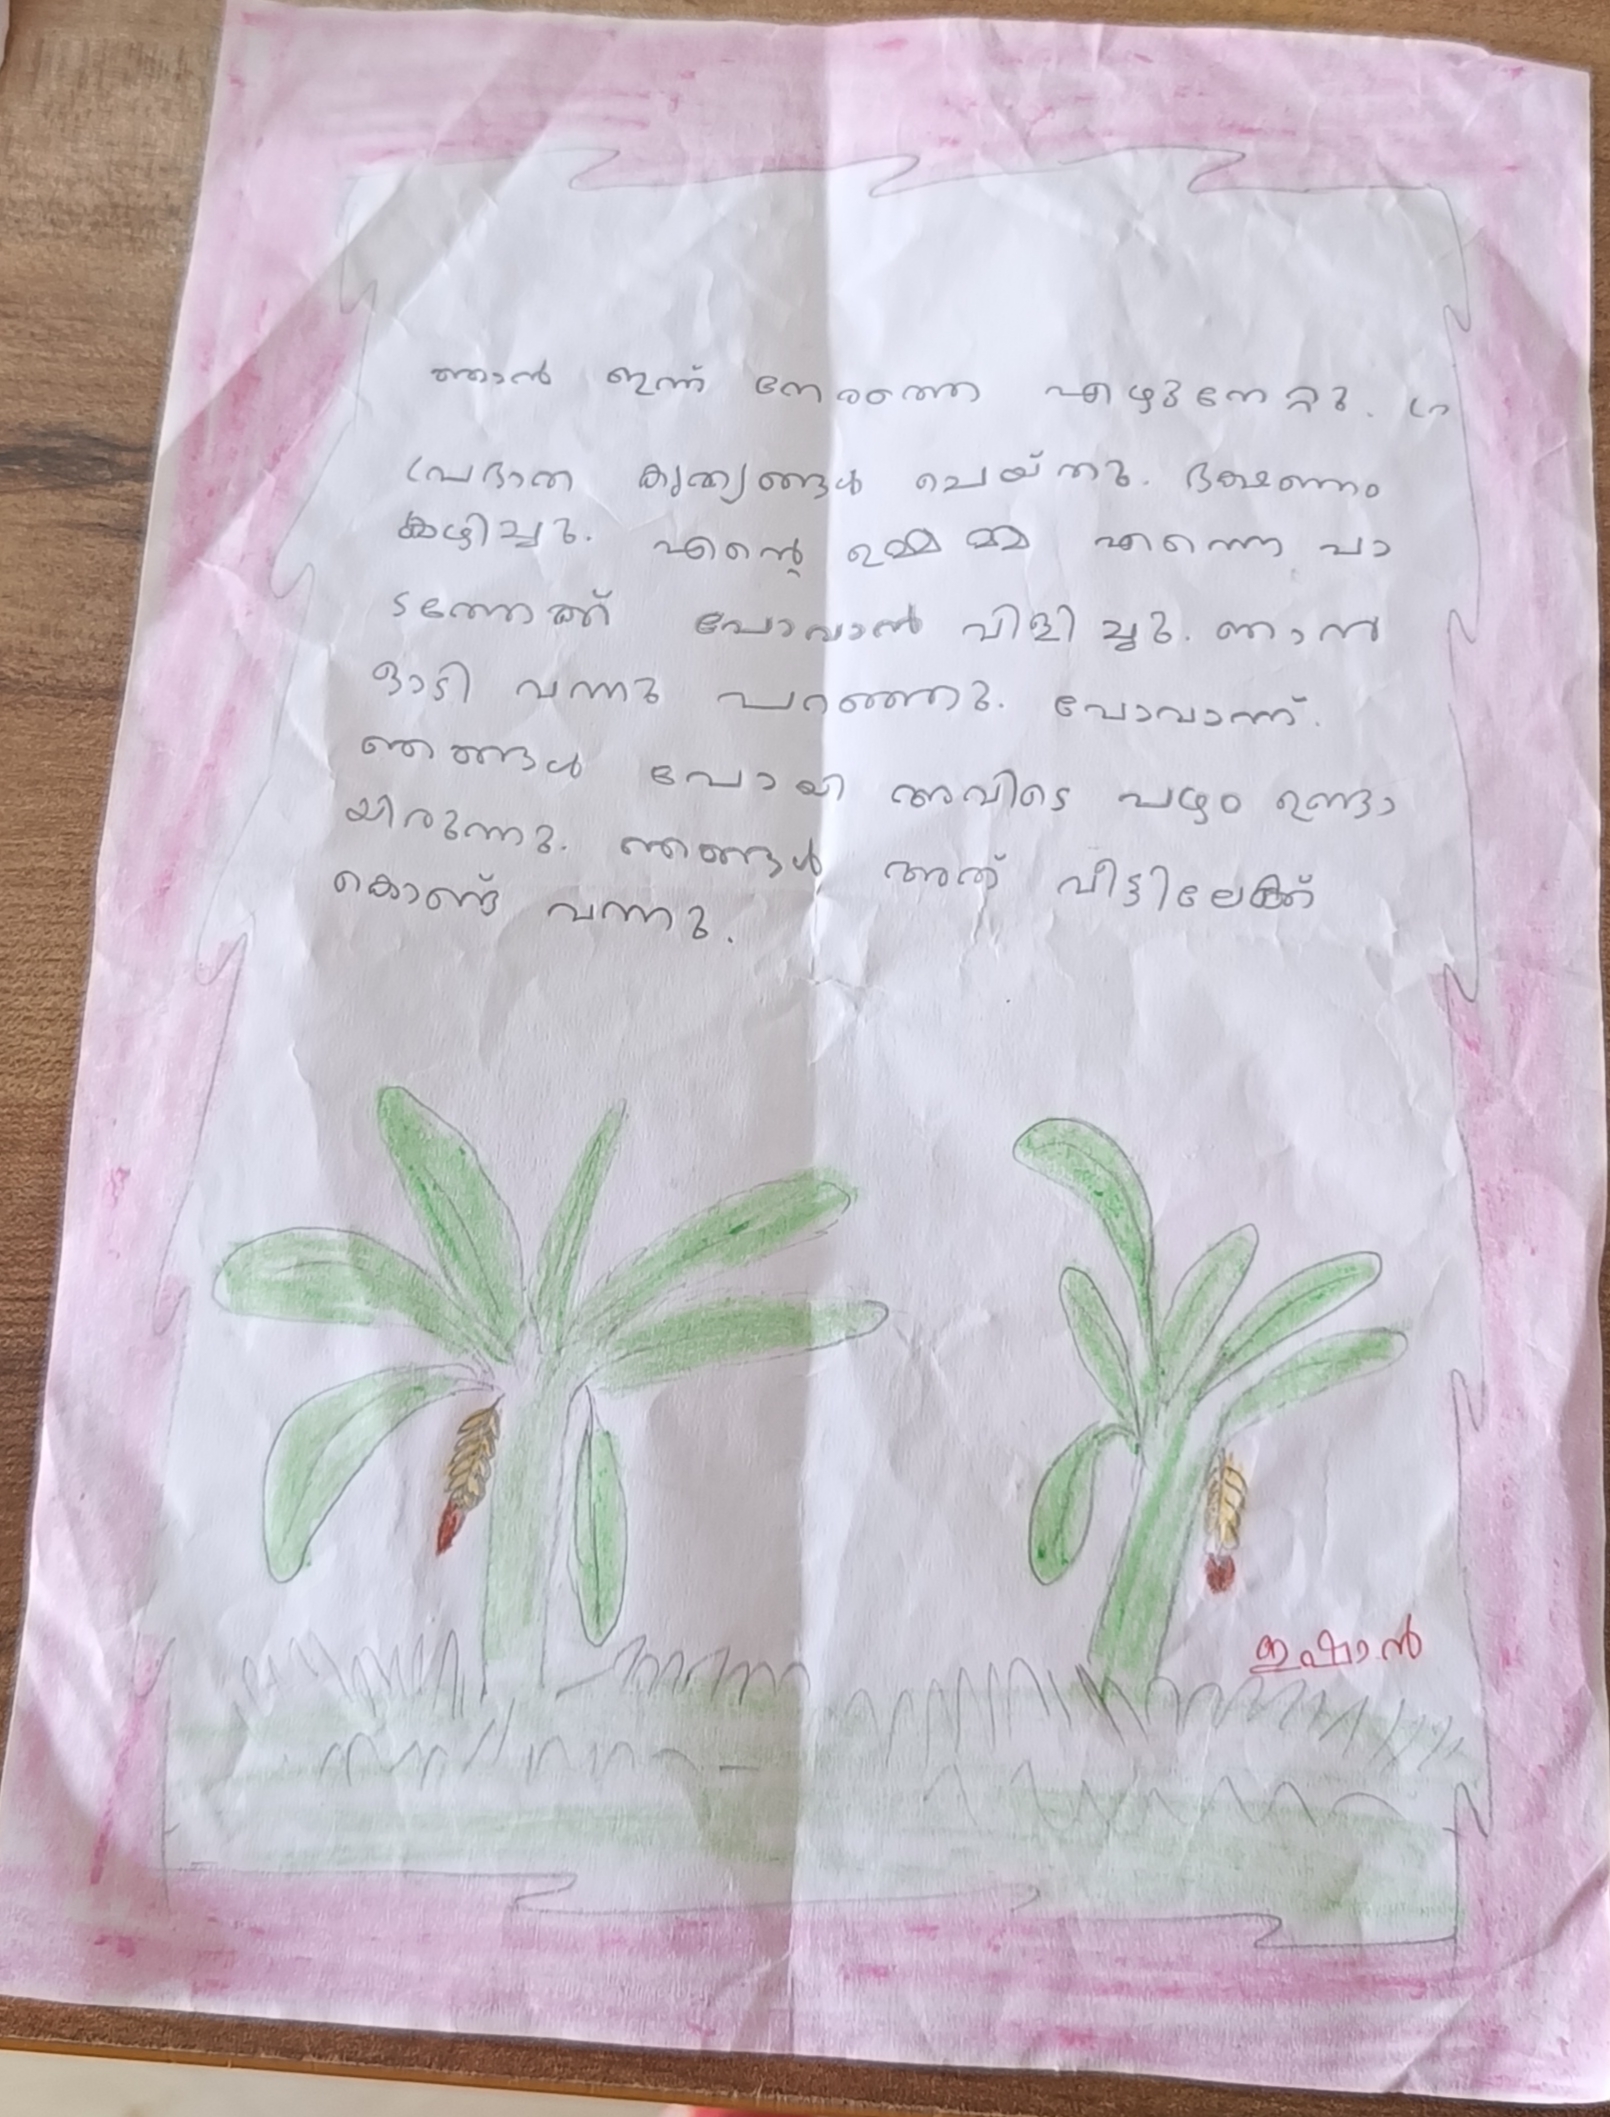 ഞാൻ ഇന്ന് നേരത്തെ എഴുനേറ്റു.
പ്രഭാത കൃത്യങ്ങൾ ചെയ്തു. ഭക്ഷണം
കഴിച്ചു. എന്റെ ഉമ്മമ്മ എന്നെ പാ
ടത്തേക്ക് പോവാൻ വിളിച്ചു. ഞാൻ
ഓടി വന്നു പറഞ്ഞു. പോവാന്ന്.
ഞങ്ങൾ പോയി അവിടെ പഴം ഉണ്ടാ
യിരുന്നു. ഞങ്ങൾ അത് വീട്ടിലേക്ക്
കൊണ്ട് വന്നു.
ഇഷാൻ